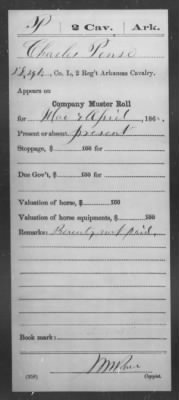 P | 2 Cav. | Ark.
Charles Pense
, Co. L, 2 Reg't Arkansas Cavalry.
Appears on
Company Muster Roll
for Mar & April, 186
Present or absent, present
Stoppage, $ 100 for
Due Gov't, $ 100 for
Valuation of horse, $ 100
Valuation of horse equipments, $ 100
Remarks: Bounty not paid.
Book mark:
(358)
Copyist.